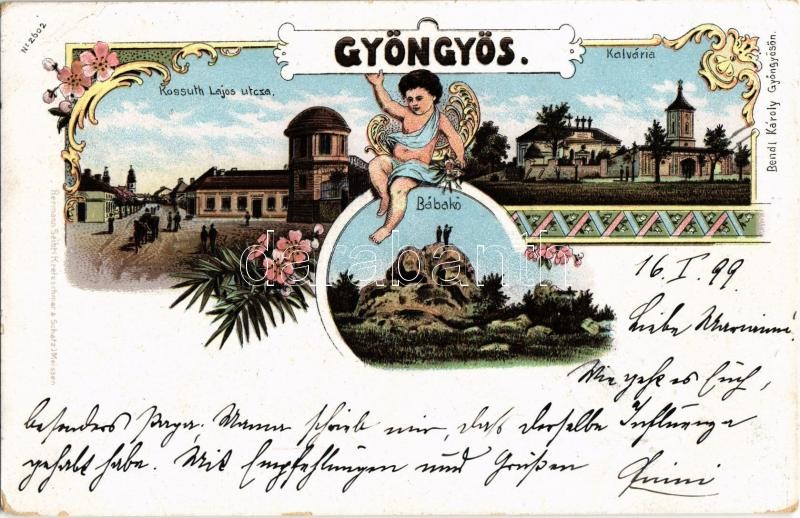 No 2602
GYÖNGYÖS.
Kossuth Lajos utcza.
Kalvária
Bendl Károly Gyöngyösön.
Bábakő
Hermann Seibt (Kretzschmar & Schatz) Meissen
darabanth
16. I. 99
Liebe Marianne!
Wie geht es Euch,
besonders Papa, Mama schrieb mir, daß derselbe Influenza
gehabt habe. Mit Empfehlungen und Grüßen